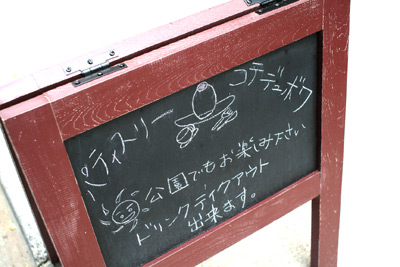 ティスリー
コテデュボワ
公園でもお楽しみ下さい
ドリンクテイクアウト
出来ます。